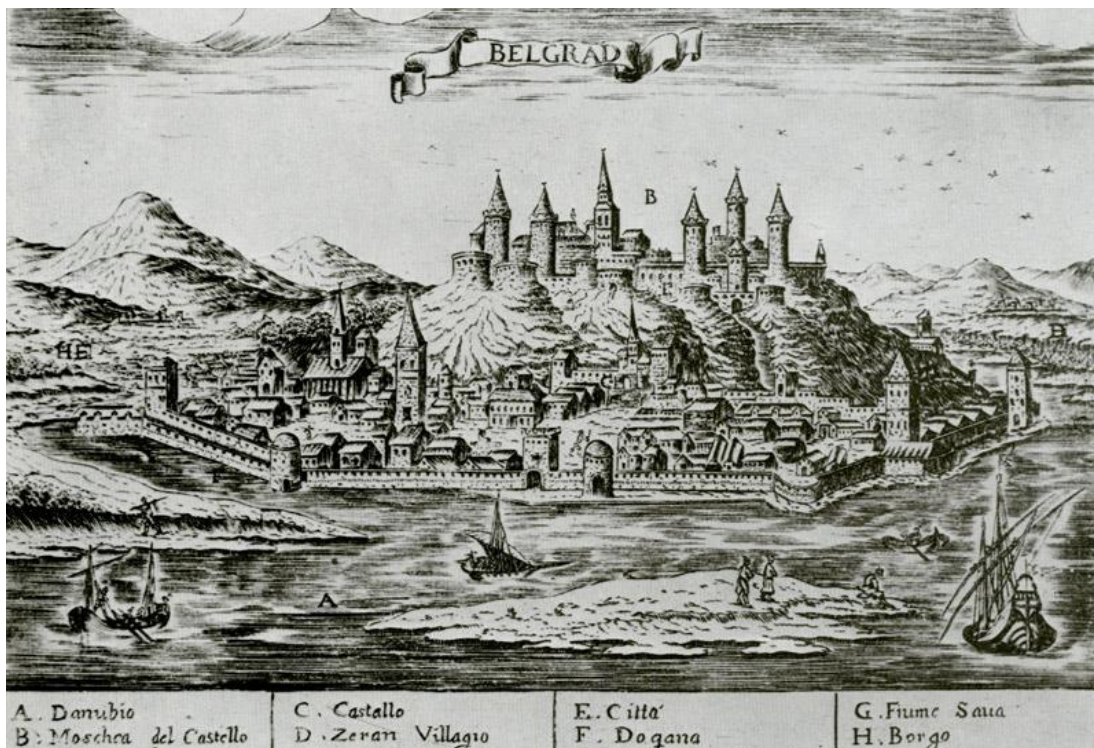 BELGRAD
B
HE
B
A
A. Danubio
B. Moschea del Castello
C. Castallo
D. Zeran Villagio
E. Città
F. Dogana
G. Fiume Saua
H. Borgo